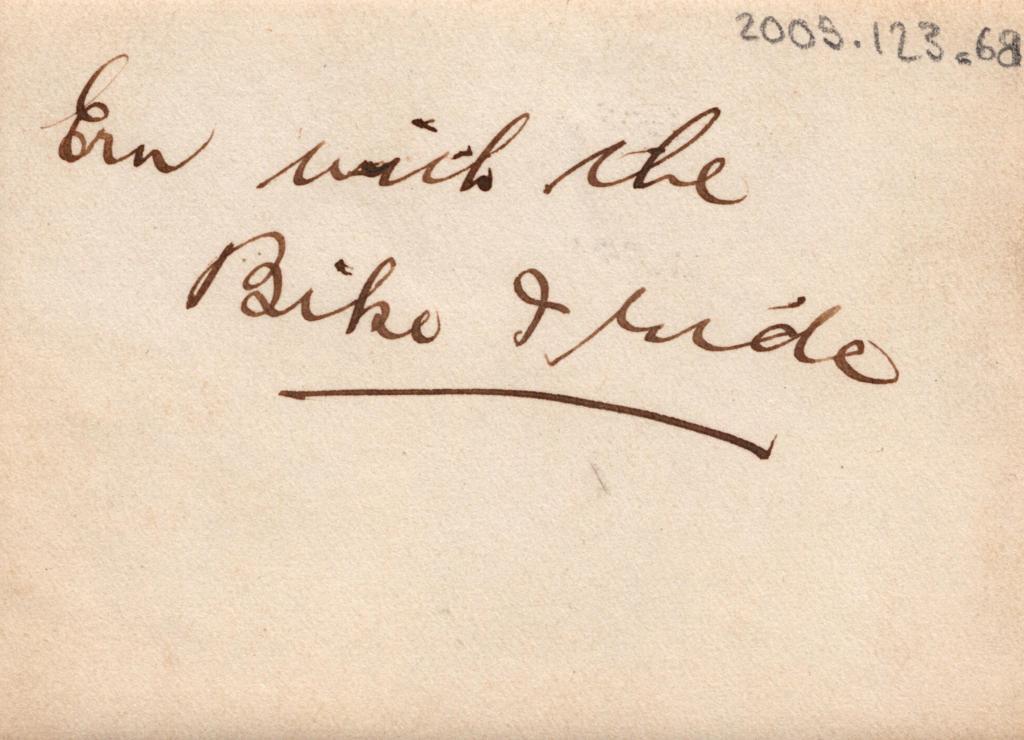 2009.123.68
Ern with the
Bike I ride